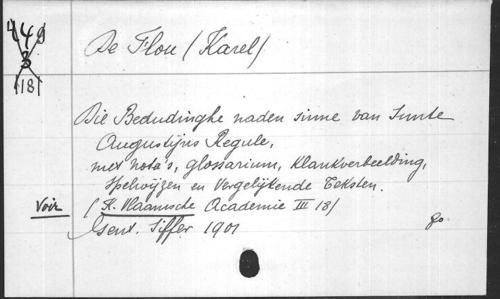 449
3
181
De Flou (Karel)
Die Bedudinghe naden sinne van Sunte
Augustijns Regule,
met nota's, glossarium, klankverbeelding,
spelwijzen en Vergelijkende Teksten.
Voir (K. Vlaamsche Academie III 18)
Gent. Siffer 1901